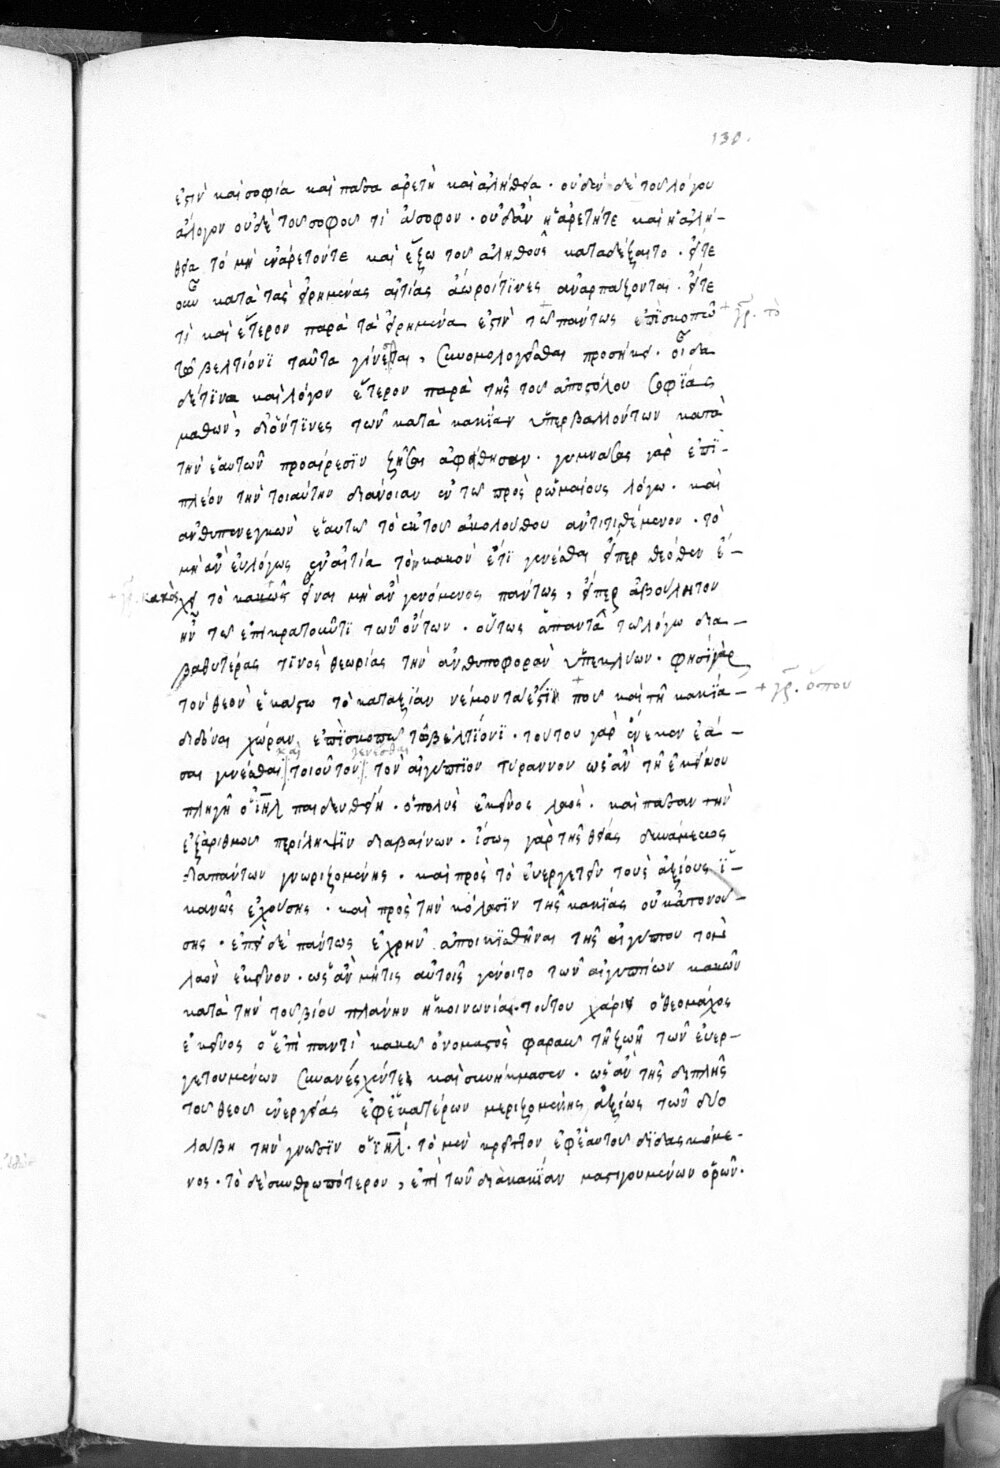 130.
ἐστιν καὶ σοφία καὶ πᾶσα ἀρετὴ καὶ ἀλήθεια · οὐδὲν δὲ τοῦ λόγου
ἄλογον οὐδὲ τοῦ σοφοῦ τι ἄσοφον · οὐδ' ἂν ἡ ἀρετή τε καὶ ἡ ἀλή-
θεια τὸ μὴ ἐνάρετόν τε καὶ ἔξω τοῦ ἀληθοῦς καταδέξαιτο · εἴτε
οὖν κατὰ τὰς εἰρημένας αἰτίας ἄωροί τινες ἀναρπάζονται · εἴτε
τι καὶ ἕτερον παρὰ τὰ εἰρημένα ἐστὶν τῷ πάντως ἐπισκοπεῖν + γρ. τὸ
τῷ βελτίονι ταῦτα γίνεται, συνομολογεῖσθαι προσήκει · οἶδα
δέ τινα καὶ λόγον ἕτερον παρὰ τῆς τοῦ ἀποστόλου σοφίας
μαθὼν, δι' οὕ τινες τῶν κατὰ κακίαν ὑπερβαλλόντων κατὰ
τὴν ἑαυτῶν προαίρεσιν ζῆσαι ἀφείθησαν · γυμνάσας γὰρ ἐπι-
πλέον τὴν τοιαύτην διάνοιαν ἐν τῷ πρὸς ῥωμαίους λόγῳ · καὶ
ἀνθυπενεγκὼν ἑαυτῷ τὸ ἐκ τοῦ ἀκολούθου ἀντιτιθέμενον · τὸ
μὴ ἂν εὐλόγως ἐν αἰτίᾳ τὸν κακὸν ἔτι γενέσθαι εἴπερ θεόθεν ἔ-
+ γρ. κακὸς χει τὸ κακῶς εἶναι μὴ ἂν γενόμενος πάντως, εἴπερ ἀβούλητον
ἦν τῷ ἐπικρατοῦντι τῶν ὄντων · οὕτως ἀπαντᾷ τῷ λόγῳ δια-
βαθυτέρας τινὸς θεωρίας τὴν ἀνθυποφορὰν ὑπεκλύων · φησὶ γὰρ
τὸν θεὸν ἑκάστῳ τὸ κατ' ἀξίαν νέμοντα ἔστιν που καὶ τῇ κακίᾳ - + γρ. ὅπου
διδόναι χώραν ἐπισκοπῷ τῷ βελτίονι · τούτου γὰρ ἕνεκεν ἐᾶ-
καὶ γενέσθαι
σαι γενέσθαι τοιοῦτον τὸν αἰγύπτιον τύραννον ὡς ἂν τῇ ἐκείνου
πληγῇ ὁ ἰηλ παιδευθείη · ὁ πολὺς ἐκεῖνος λαὸς · καὶ πᾶσαν τὴν
ἐξ ἀριθμοῦ περίληψιν διαβαίνων · ἴσως γὰρ τῆς θείας δυνάμεως
διαπάντων γνωριζομένης · καὶ πρὸς τὸ εὐεργετεῖν τοὺς ἀξίους ἱ-
κανῶς ἐχούσης · καὶ πρὸς τὴν κόλασιν τῆς κακίας οὐκ ἀτονού-
σης · ἐπεὶ δὲ πάντως ἐχρῆν ἀποικισθῆναι τῆς αἰγύπτου τὸν
λαὸν ἐκεῖνον · ὡς ἂν μή τις αὐτοῖς γένοιτο τῶν αἰγυπτίων κακῶν
κατὰ τὴν τοῦ βίου πλάνην ἡ κοινωνία · τούτου χάριν ὁ θεομάχος
ἐκεῖνος ὁ ἐπὶ παντὶ κακῷ ὀνομαστὸς φαραὼ τῇ ζωῇ τῶν εὐερ-
γετουμένων συνανέσχεν τε καὶ συνήκμασεν · ὡς ἂν τῆς διπλῆς
τοῦ θεοῦ ἐνεργείας ἐφ' ἑκατέρων μεριζομένης ἀξίως τῶν δύο
λάβῃ τὴν γνῶσιν ὁ ἰηλ · τὸ μὲν κρεῖττον ἐφ' ἑαυτοῦ διδασκόμε-
νος · τὸ δὲ σκυθρωπότερον, ἐπὶ τῶν διὰ κακίαν μαστιγουμένων ὁρῶν ·